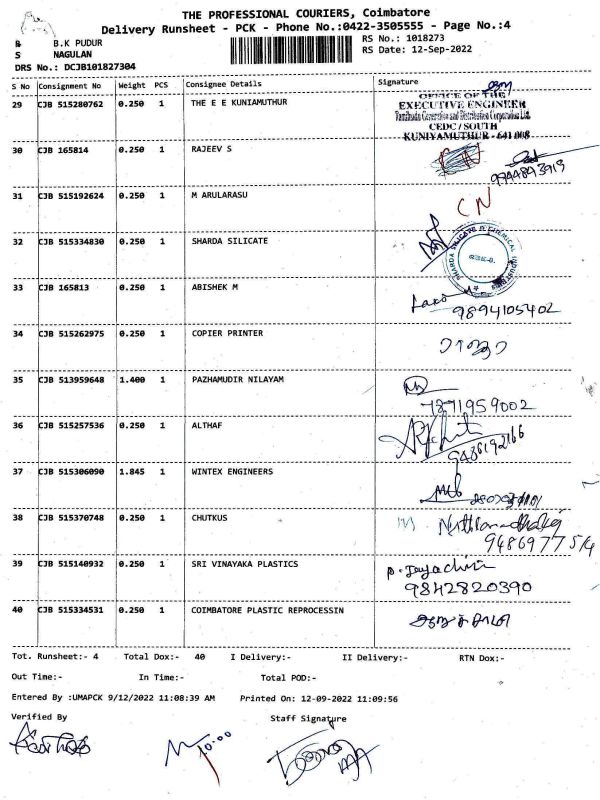 THE PROFESSIONAL COURIERS, Coimbatore
Delivery Runsheet - PCK - Phone No.:0422-3505555 - Page No.:4
B B.K PUDUR
RS No.: 1018273
S NAGULAN
RS Date: 12-Sep-2022
DRS No.: DCJB101827304
S No Consignment No Weight PCS Consignee Details Signature
29 CJB 515280762 0.250 1 THE E E KUNIAMUTHUR
OFFICE OF THE
EXECUTIVE ENGINEER
Tamilnadu Generation and Distribution Corporation Ltd.
CEDC/SOUTH
KUNIYAMUTHUR - 641 008
30 CJB 165814 0.250 1 RAJEEV S
CN
9944843919
31 CJB 515192624 0.250 1 M ARULARASU
CN
32 CJB 515334830 0.250 1 SHARDA SILICATE
SHARDA SILICATE & CHEMICAL INDUSTRIES
33 CJB 165813 0.250 1 ABISHEK M
9894105402
34 CJB 515262975 0.250 1 COPIER PRINTER
35 CJB 513959648 1.400 1 PAZHAMUDIR NILAYAM
7871959002
36 CJB 515257536 0.250 1 ALTHAF
9486192166
37 CJB 515306090 1.845 1 WINTEX ENGINEERS
38 CJB 515370748 0.250 1 CHUTKUS
9486977514
39 CJB 515140932 0.250 1 SRI VINAYAKA PLASTICS
9842820390
40 CJB 515334531 0.250 1 COIMBATORE PLASTIC REPROCESSIN
Tot. Runsheet:- 4 Total Dox:- 40 I Delivery:- II Delivery:- RTN Dox:-
Out Time:- In Time:- Total POD:-
Entered By :UMAPCK 9/12/2022 11:08:39 AM Printed On: 12-09-2022 11:09:56
Verified By Staff Signature
10:00